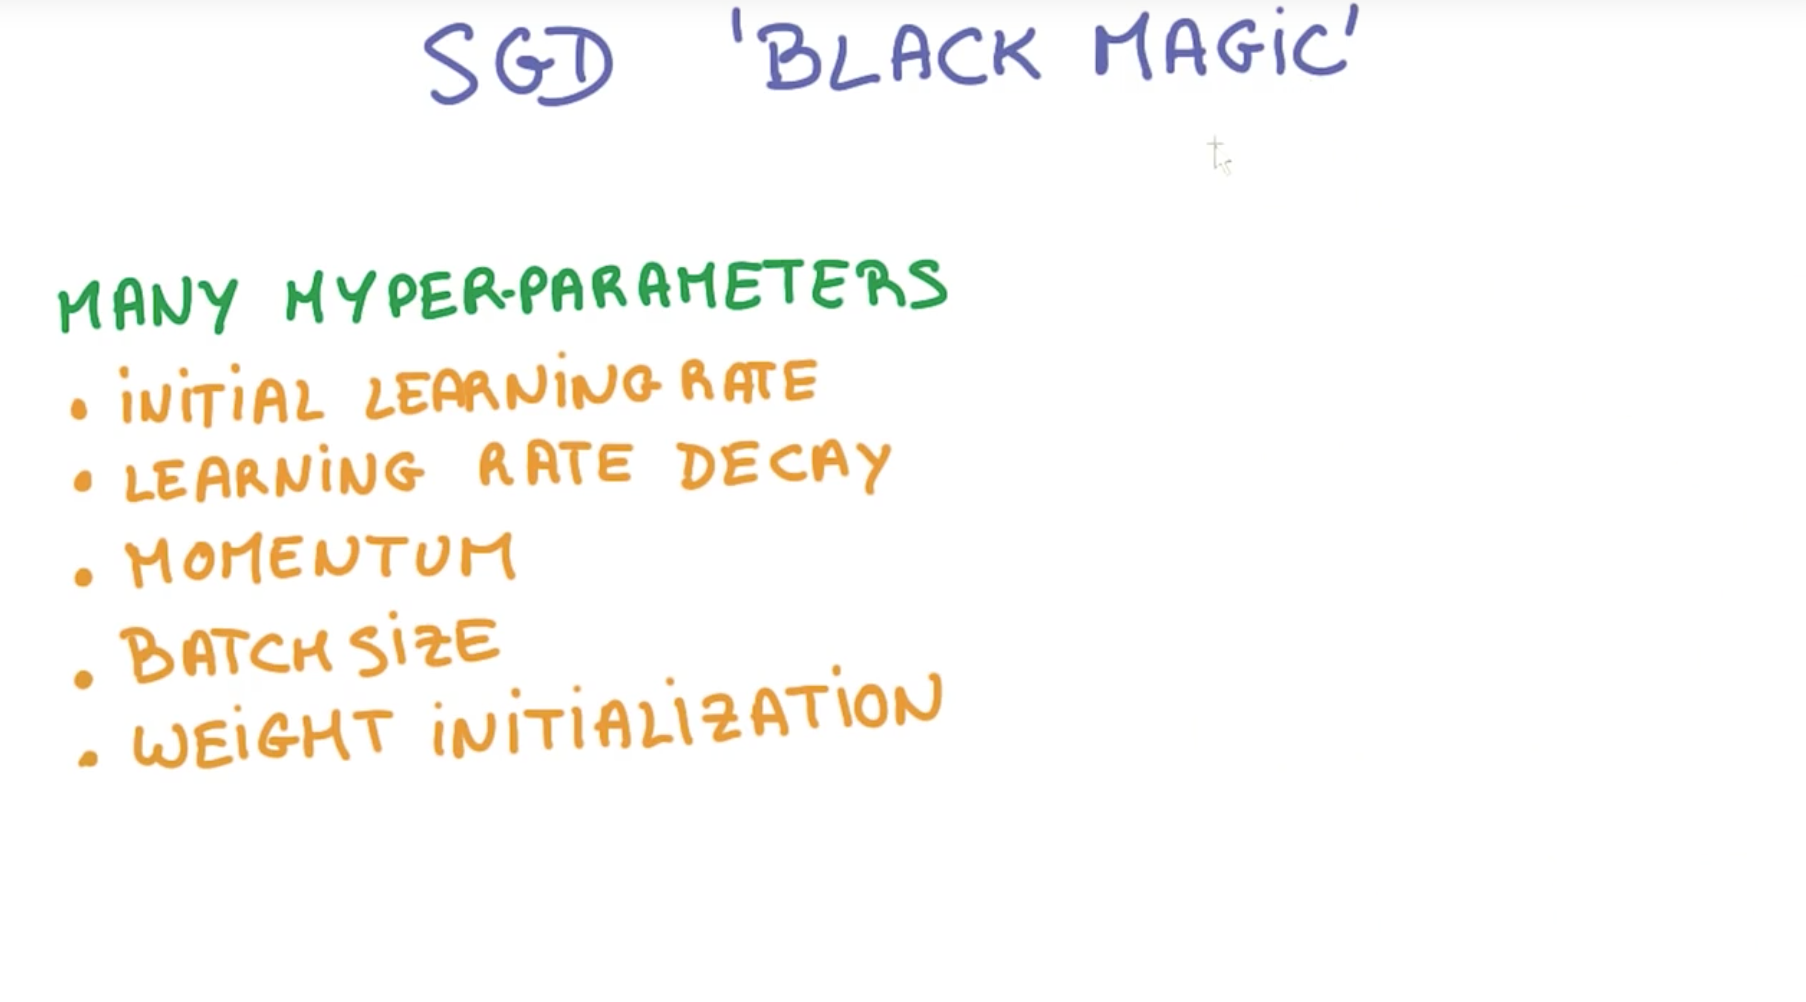 SGD 'BLACK MAGIC'
MANY HYPER-PARAMETERS
• INITIAL LEARNING RATE
• LEARNING RATE DECAY
• MOMENTUM
• BATCH SIZE
• WEIGHT INITIALIZATION